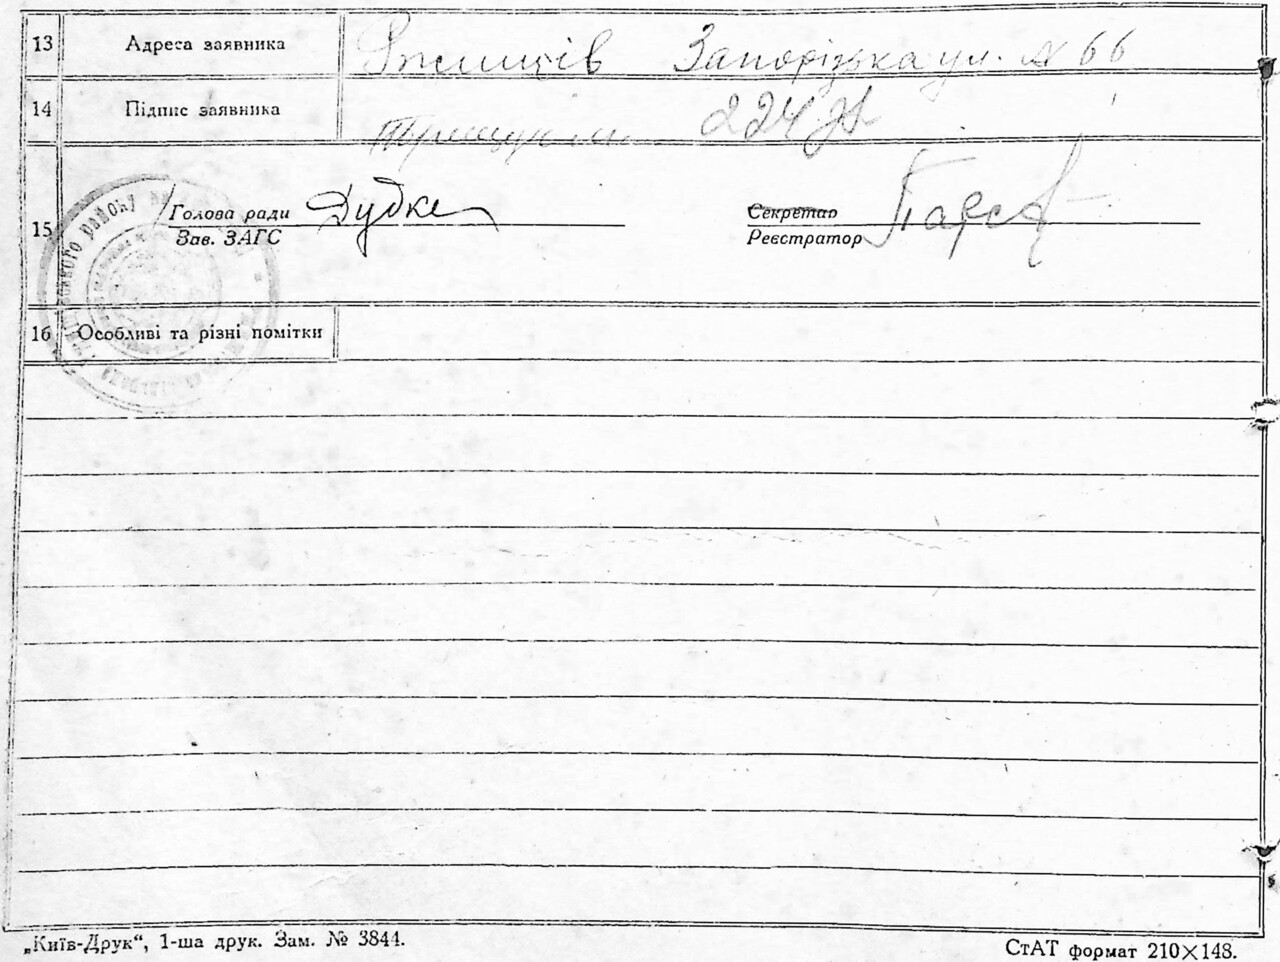 13 Адреса заявника Запорізька ул. № 66
14 Підпис заявника 224
15 Голова ради Дудке Секретар
Зав. ЗАГС Реєстратор
району
16 Особливі та різні помітки
„Київ-Друк“, 1-ша друк. Зам. № 3844. СтАТ формат 210×148.